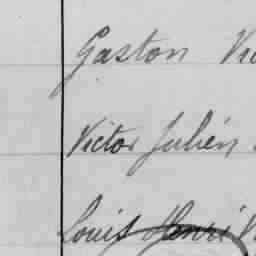 Gaston Vic
Victor Julien
Louis Henri V